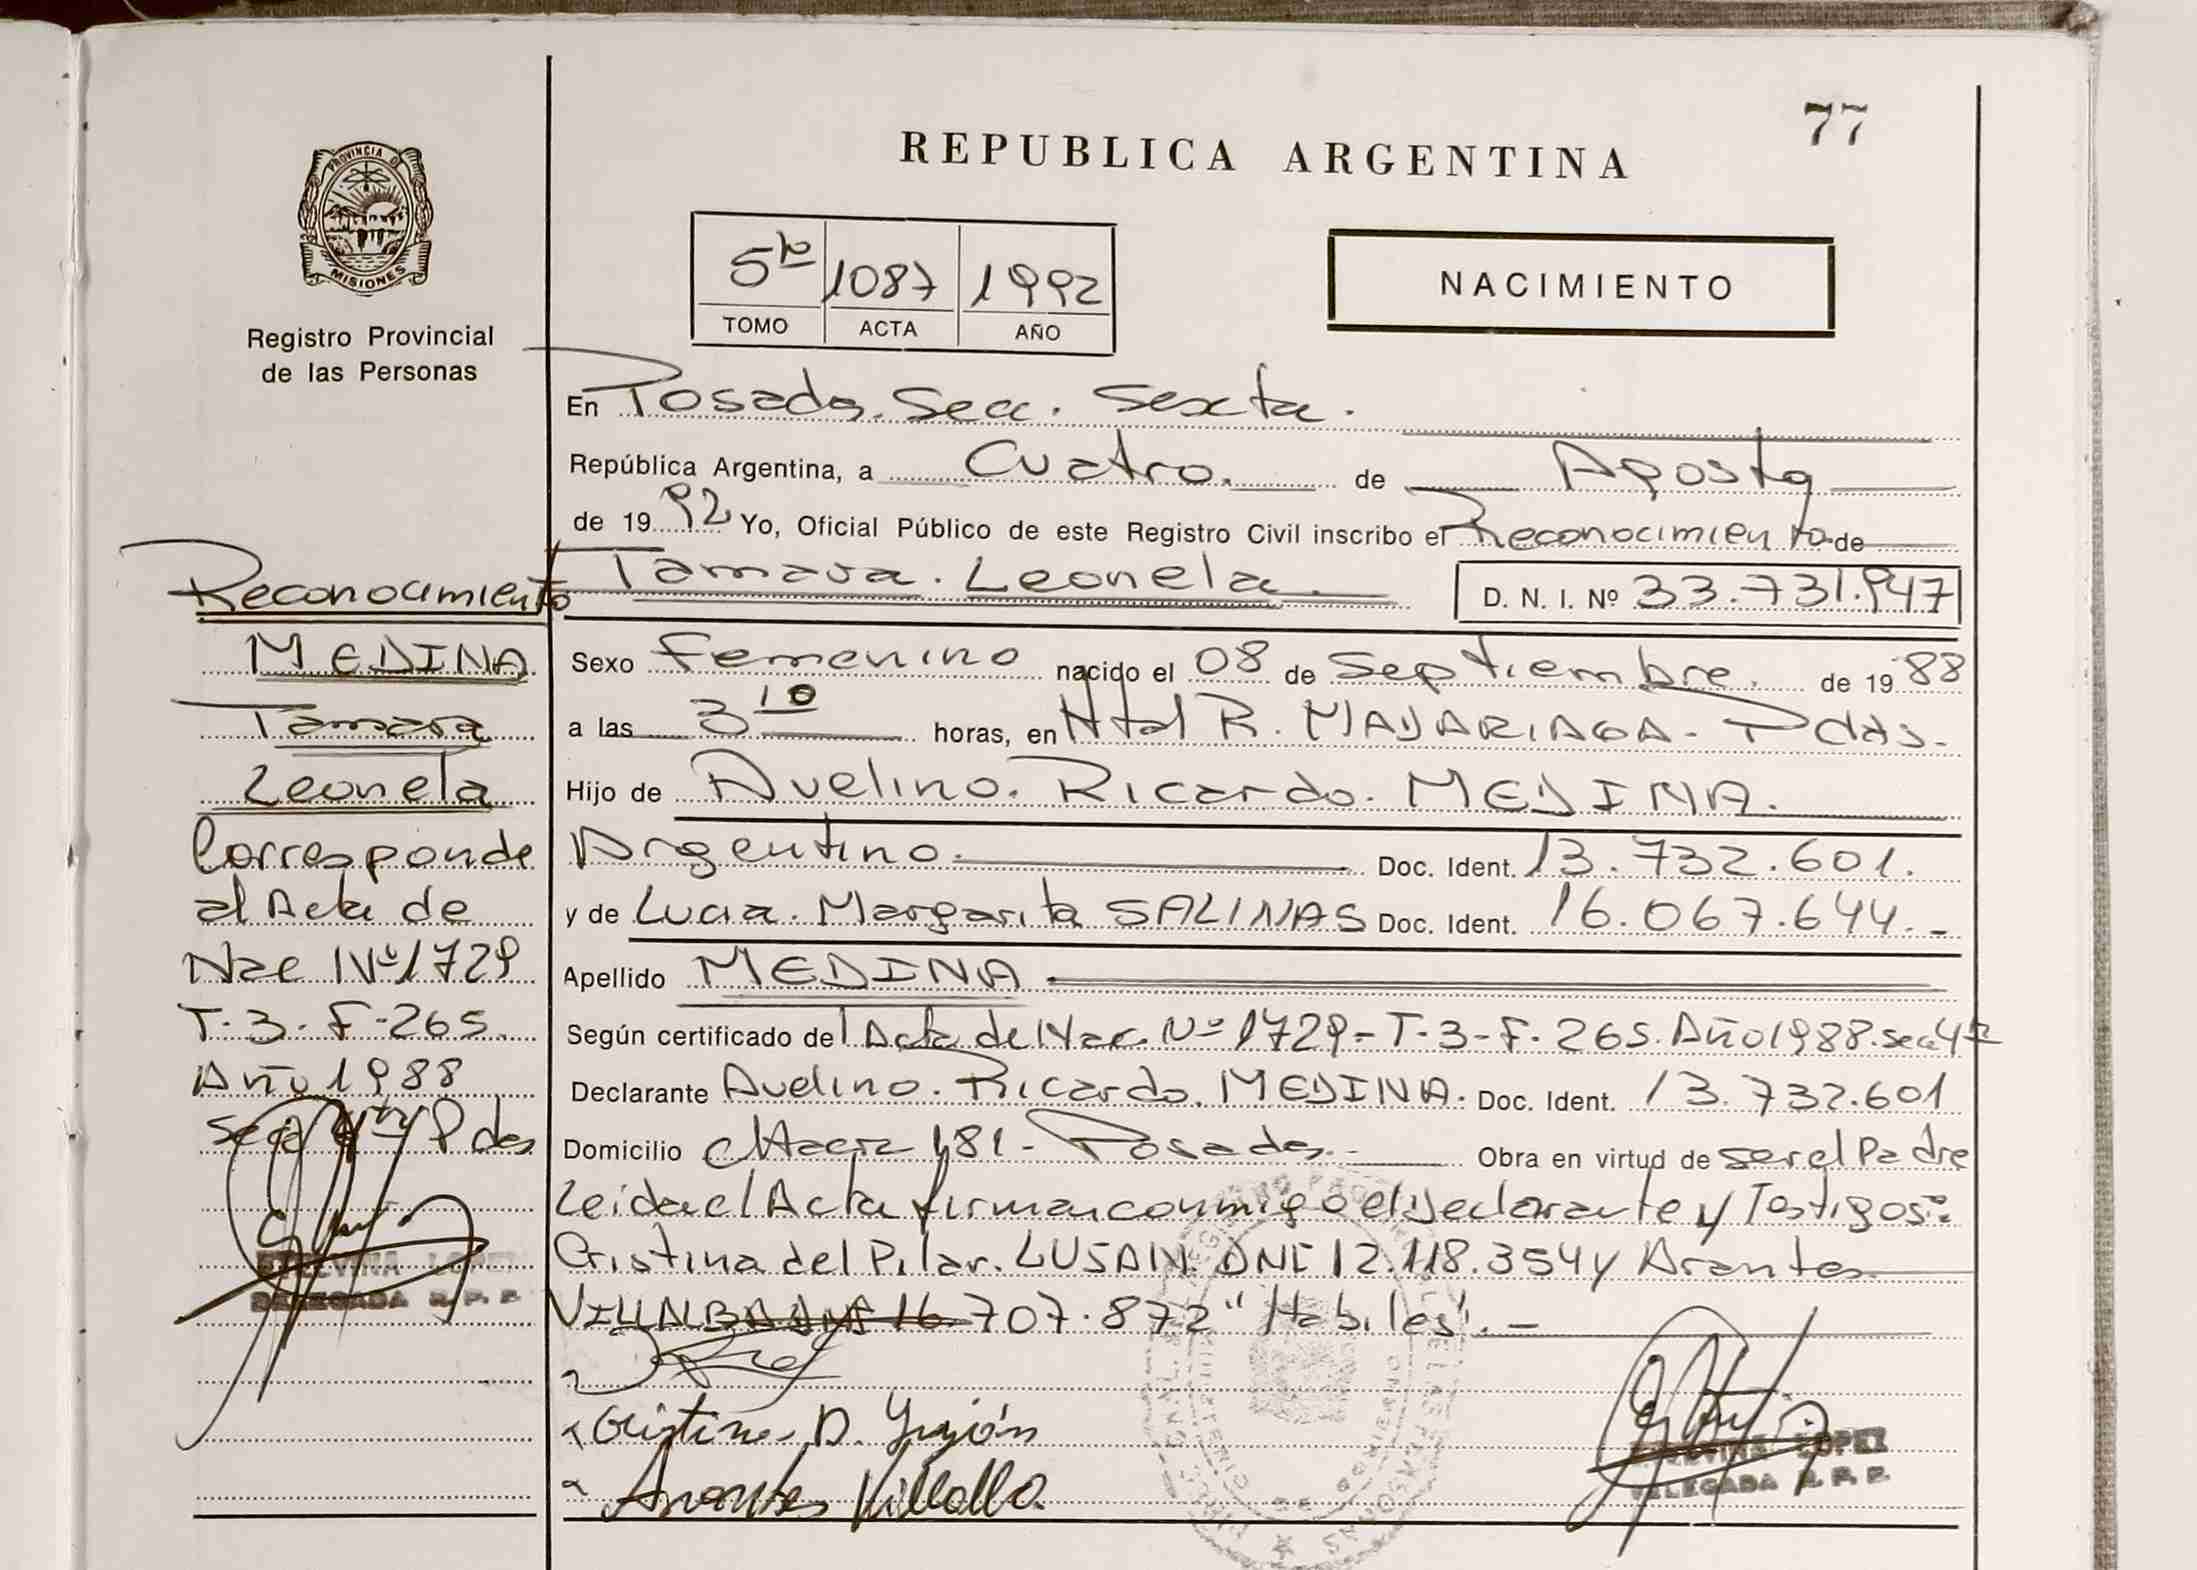 77
REPUBLICA ARGENTINA
PROVINCIA DE
MISIONES
Registro Provincial
de las Personas
5to 1087 1992
TOMO ACTA AÑO
NACIMIENTO
En Posadas. Secc. Sexta.
República Argentina, a Cuatro. de Agosto
de 1992 Yo, Oficial Público de este Registro Civil inscribo el Reconocimiento de
Tamara. Leonela. D. N. I. Nº 33.731.947
Sexo Femenino nacido el 08 de Septiembre. de 1988
a las 3 10 horas, en Htal R. MADARIAGA. Pdas.
Hijo de Avelino. Ricardo. MEDINA.
Argentino. Doc. Ident. 13.732.601.
y de Lucia. Margarita SALINAS Doc. Ident. 16.067.644.-
Apellido MEDINA
Según certificado del Acta de Nac. Nº 1729-T-3-F-265. Año 1988. Secc 4ta
Declarante Avelino. Ricardo. MEDINA. Doc. Ident. 13.732.601
Domicilio 481- Posadas. Obra en virtud de ser el Padre
Leida el Acta firman conmigo el Declarante y Testigos:
Cristina del Pilar. LUJAN. DNI 12.118.354 y Arantes
VILLALBA DNI 16.707.872 "Habiles".-
Cristina D. Luján
Arantes Villalba
LOPEZ
DELEGADA R. P. P.
Reconocimiento
MEDINA
Tamara
Leonela
Corresponde
al Acta de
Nac Nº 1729
T-3-F-265.
Año 1988
Secc 4ta Pdas
LOPEZ
DELEGADA R. P. P.